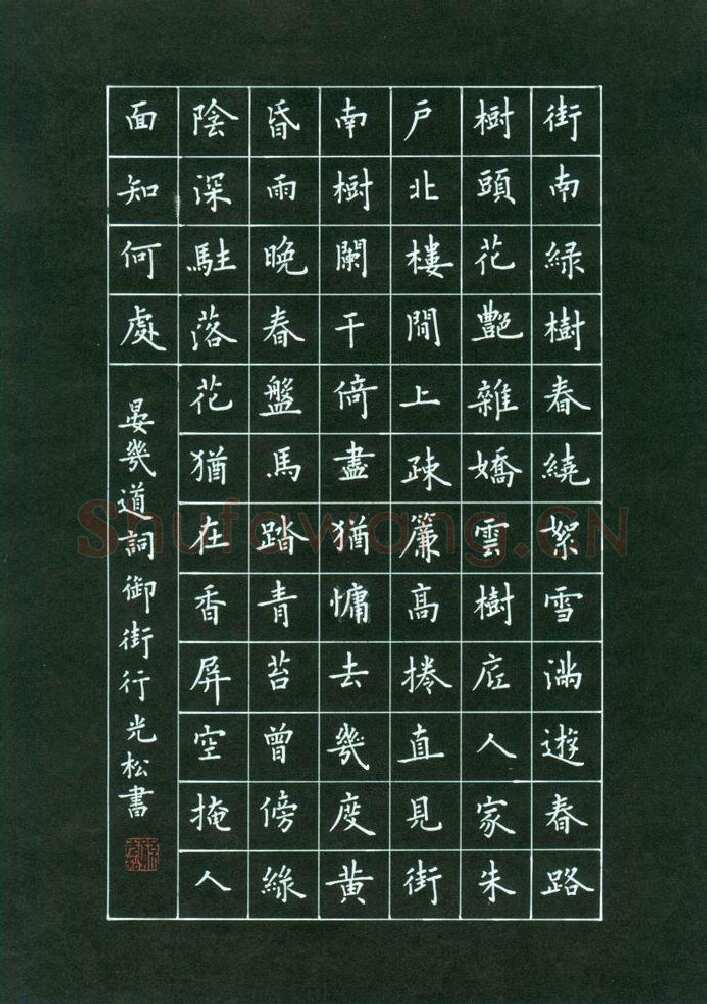 街南緑樹春繞絮雪滿遊春路
樹頭花艷雜嬌雲樹底人家朱
戶北樓閒上疎簾高捲直見街
南樹闌干倚盡猶慵去幾度黃
昏雨晚春盤馬踏青苔曾傍緑
陰深駐落花猶在香屏空掩人
面知何處
晏幾道詞御街行光松書
Shufawang.CN